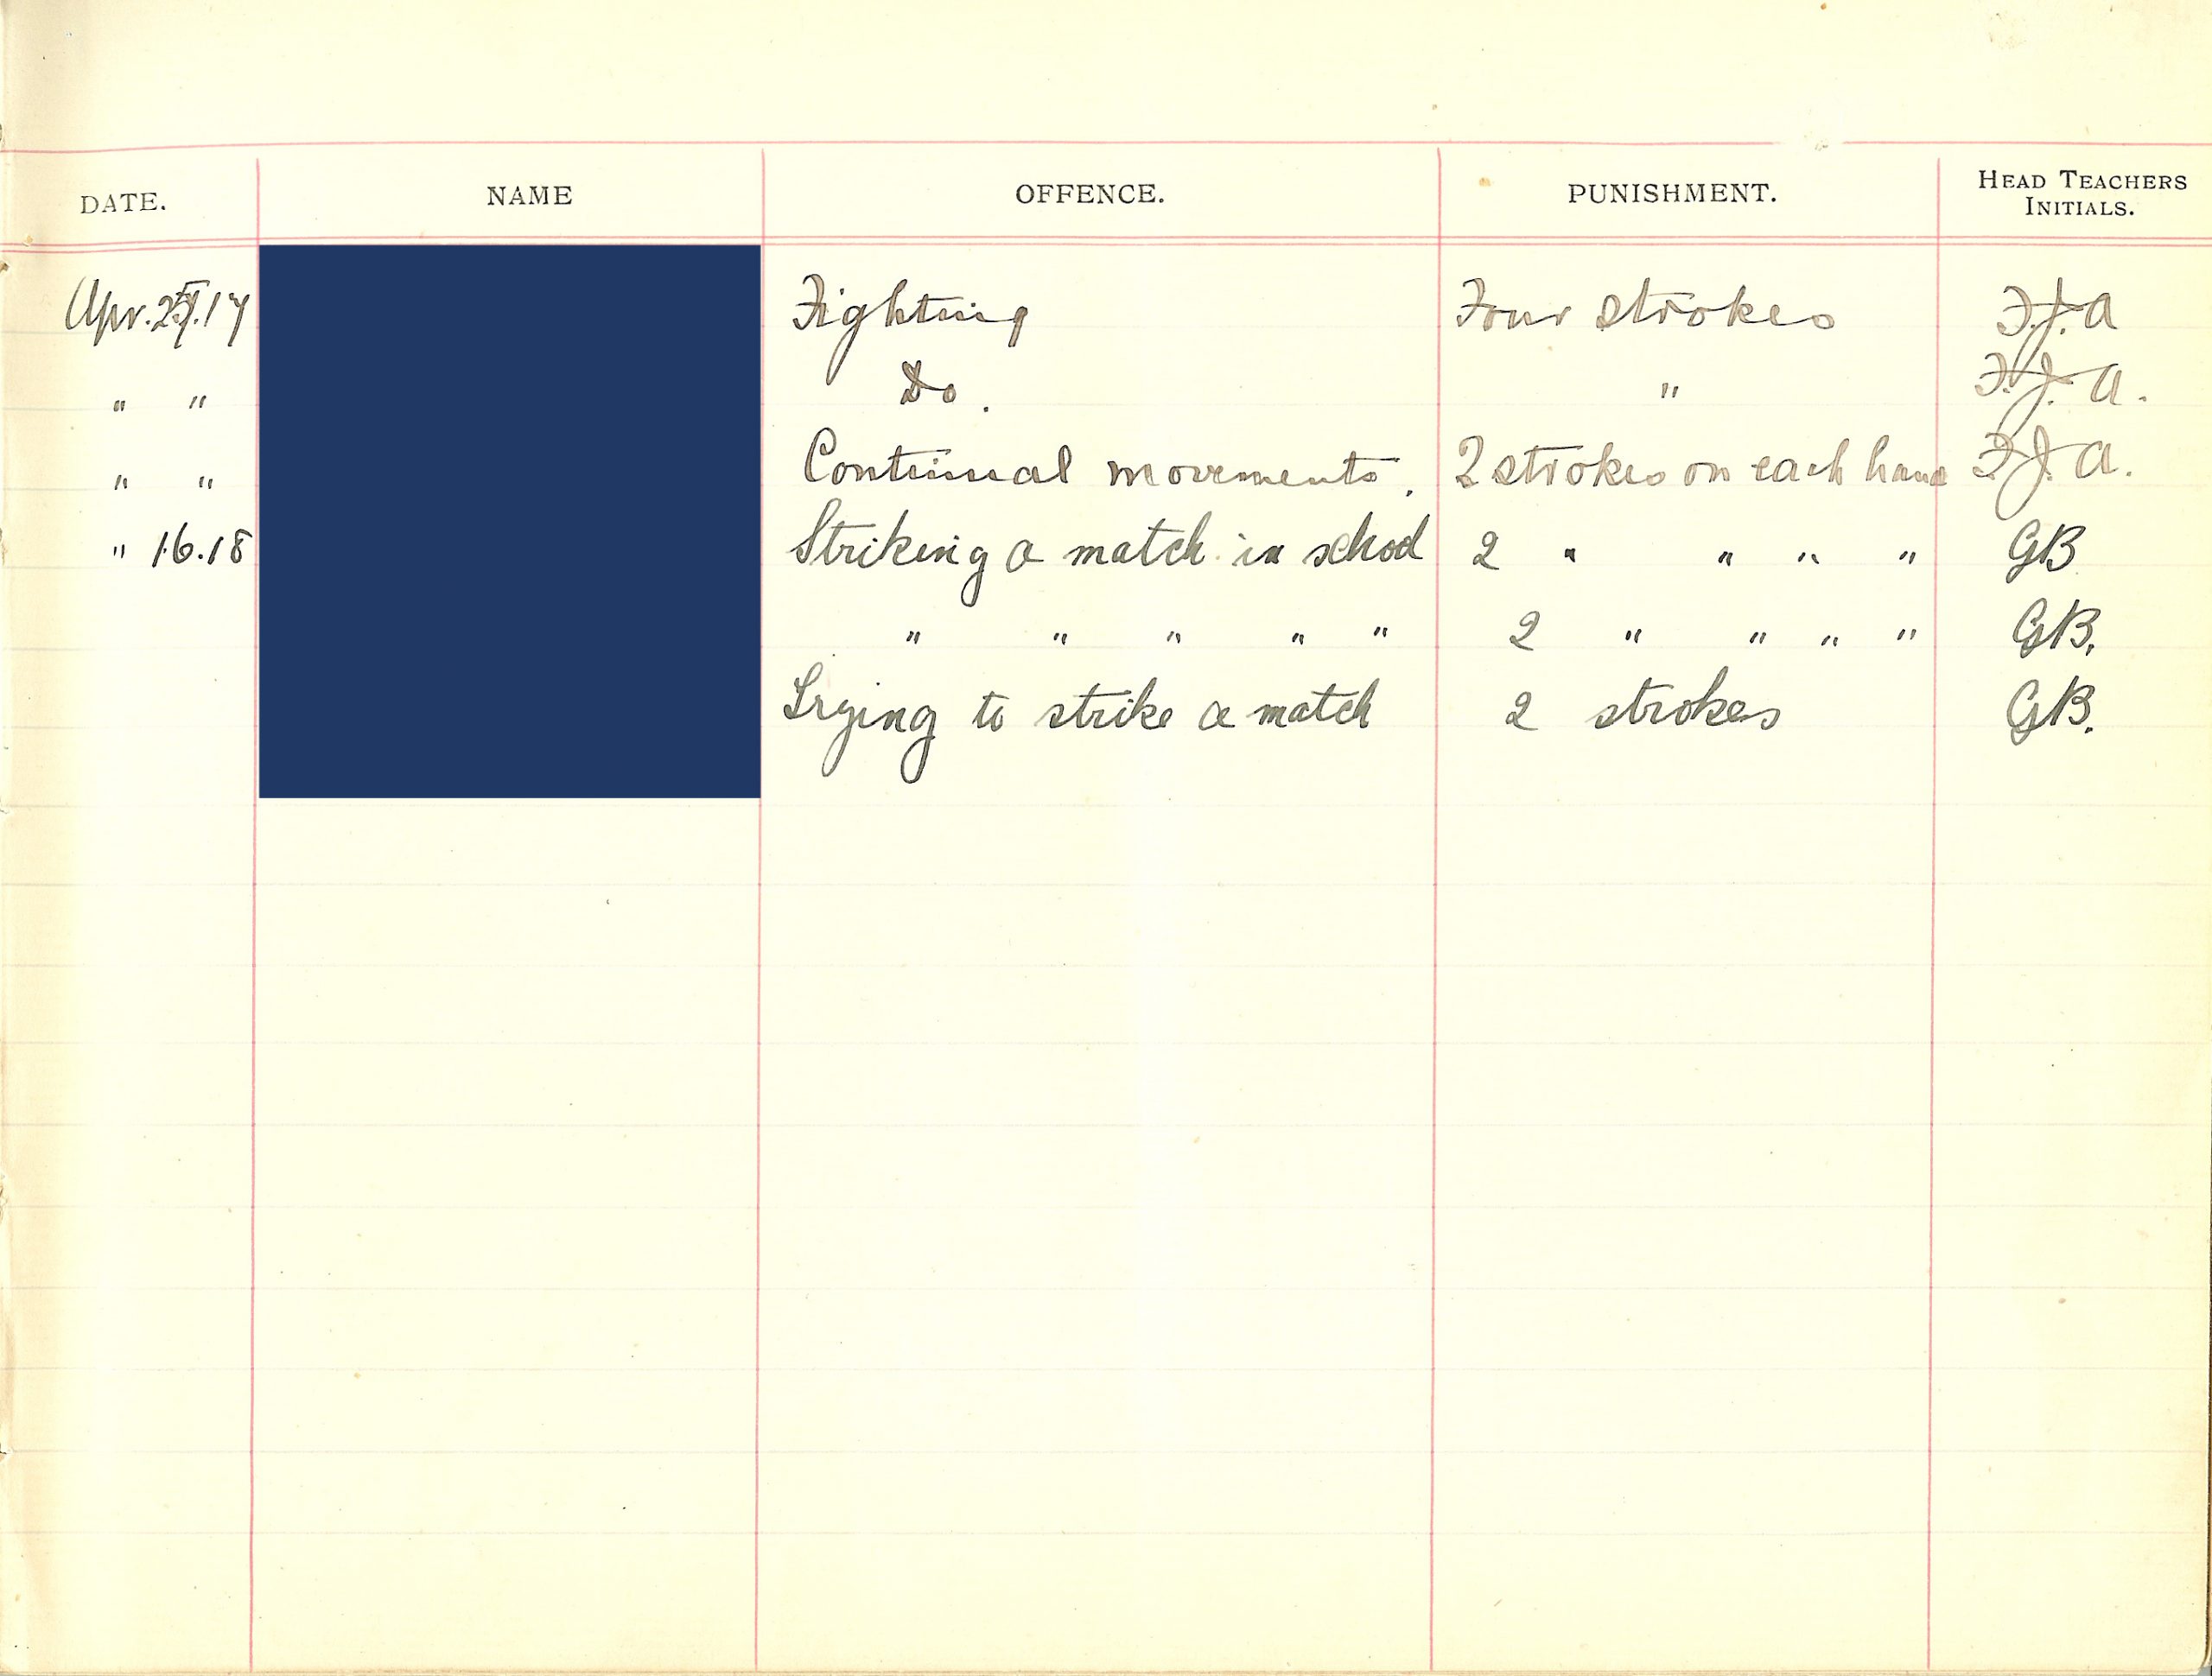 DATE. NAME OFFENCE. PUNISHMENT. HEAD TEACHERS INITIALS.
Apr. .17 Fighting Four strokes F.J.A
" " Do. " F.J.A.
" " Continual movements. 2 strokes on each hand F.J.A.
" 16.18 Striking a match in school 2 " " " " GB
" " " " " 2 " " " " GB.
Trying to strike a match 2 strokes GB.